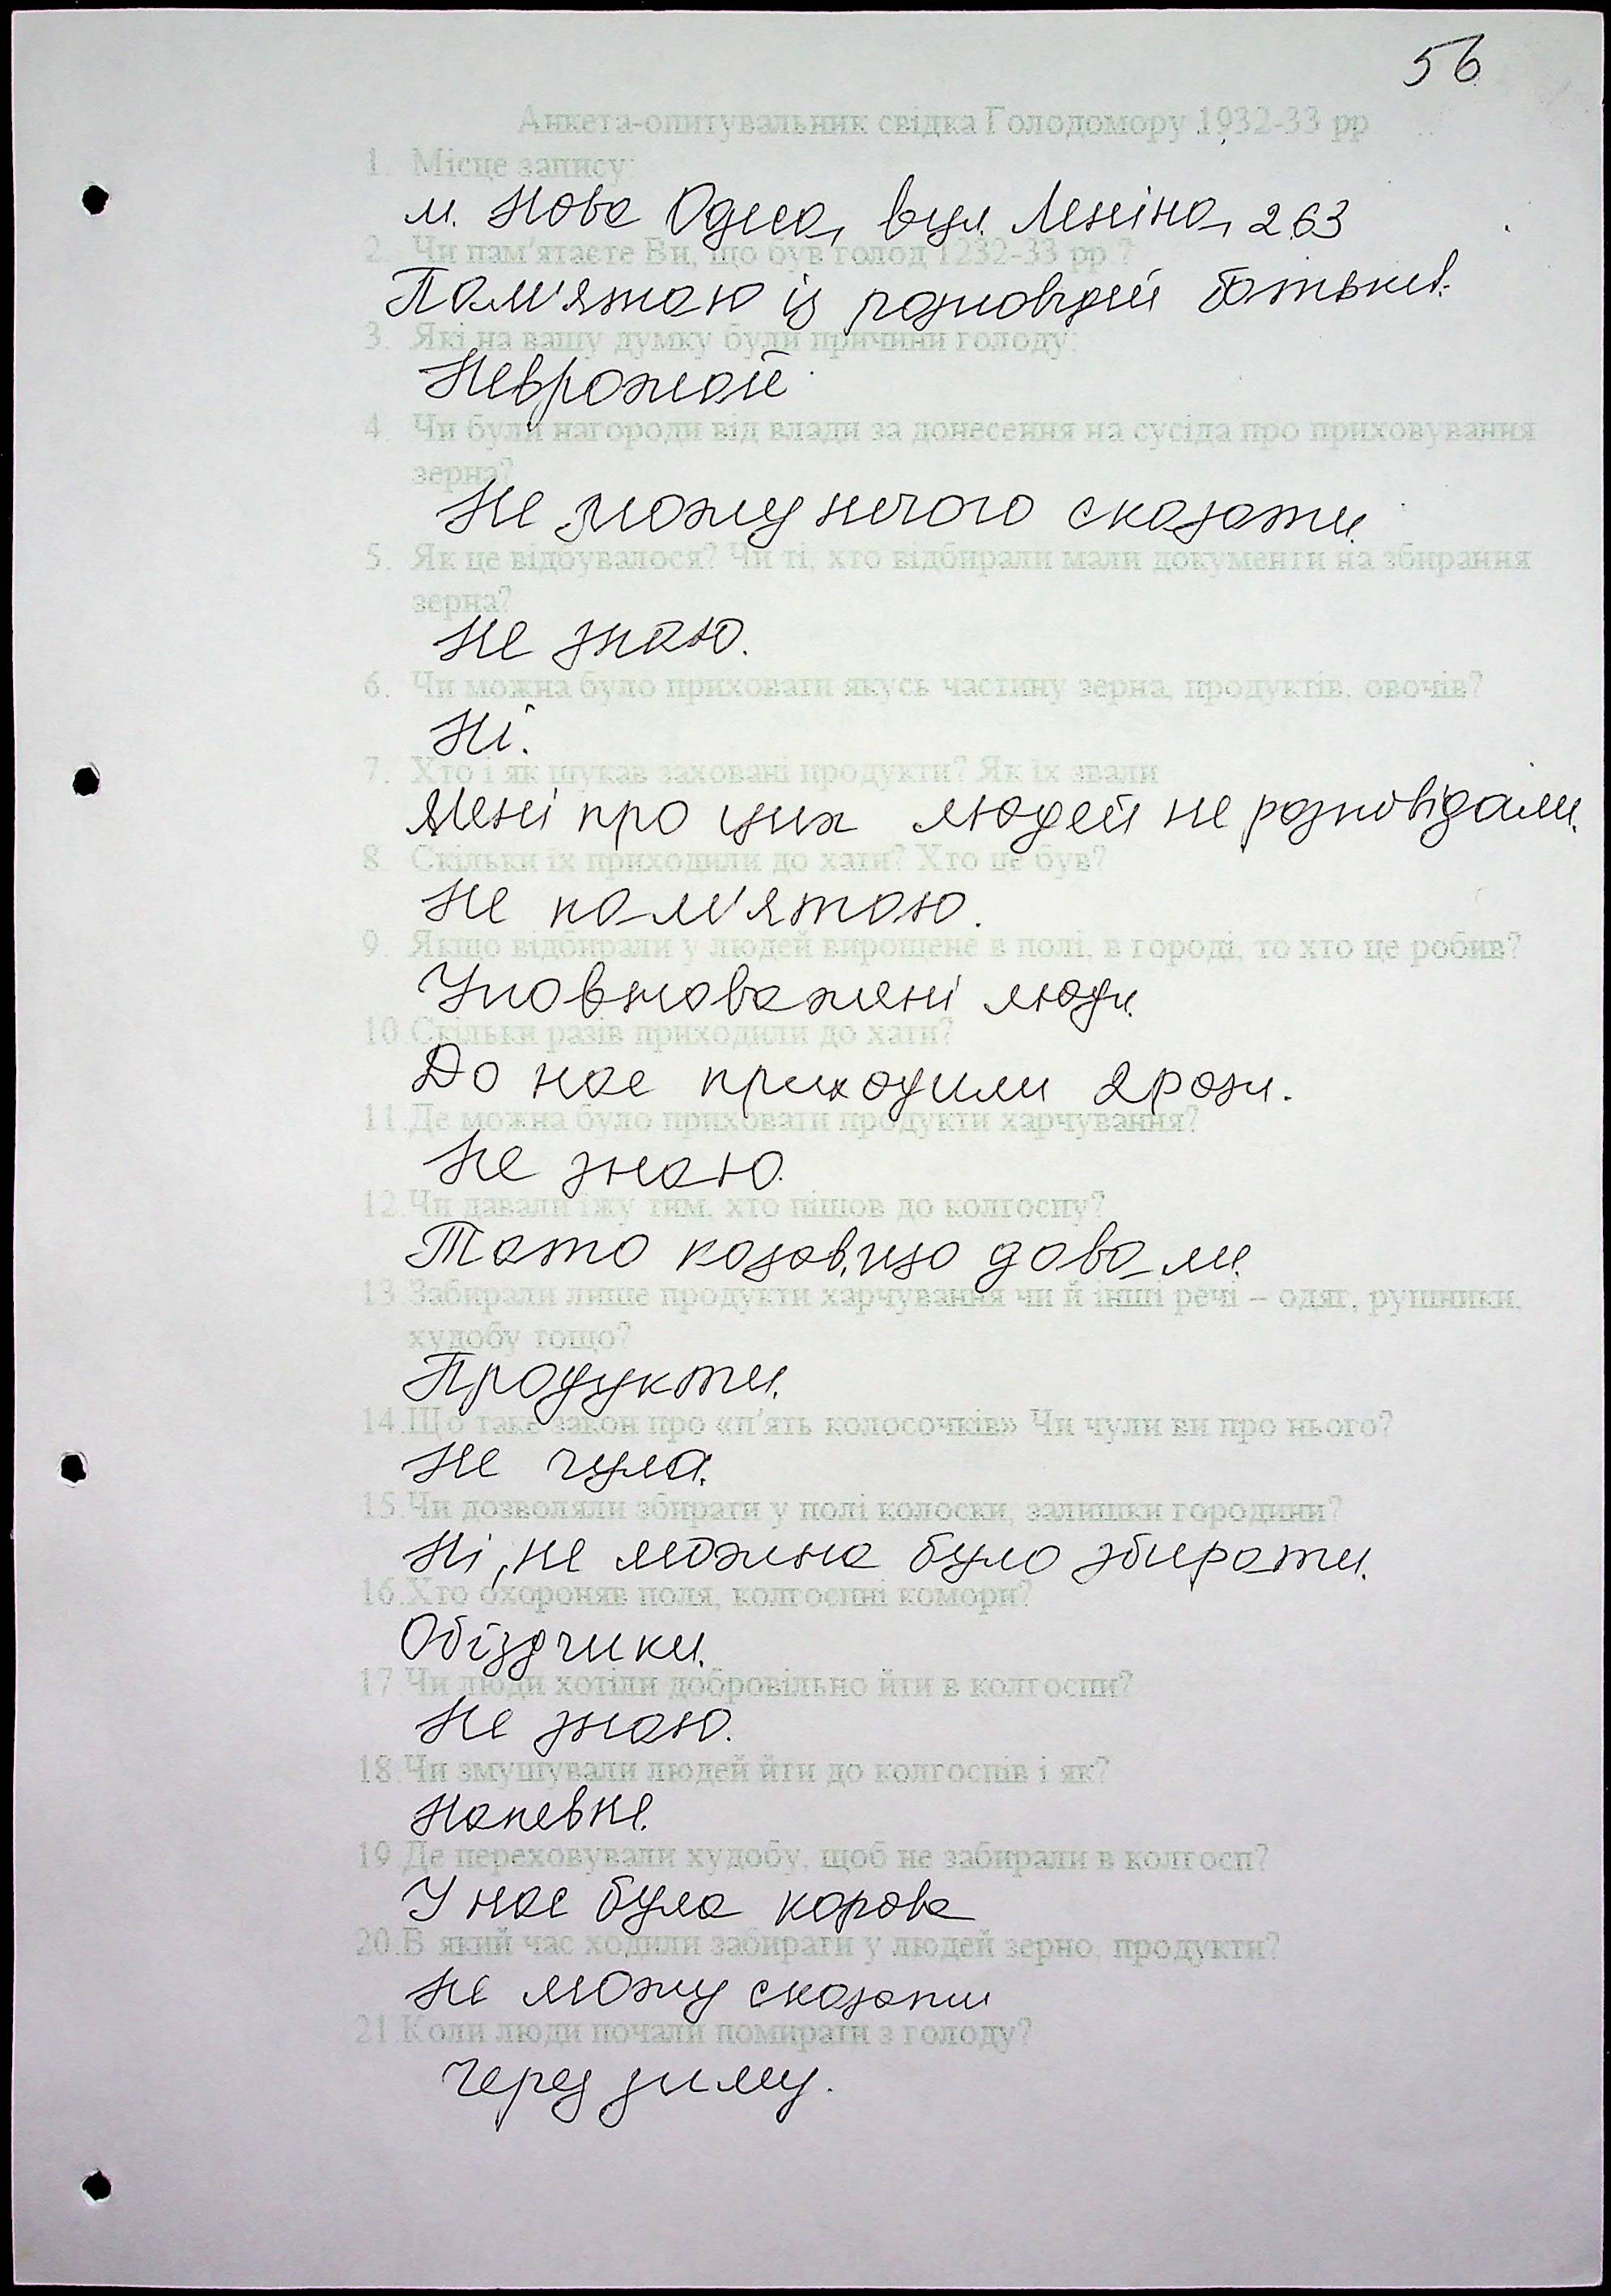 56
Анкета-опитувальник свідка Голодомору 1932-33 рр
1. Місце запису:
м. Нова Одеса, вул. Леніна, 263
2. Чи пам'ятаєте Ви, що був голод 1232-33 рр.?
Пам'ятаю із розповідей батьків.
3. Які на вашу думку були причини голоду:
Неврожай
4. Чи були нагороди від влади за донесення на сусіда про приховування
зерна?
Не можу нічого сказати.
5. Як це відбувалося? Чи ті, хто відбирали мали документи на збирання
зерна?
Не знаю.
6. Чи можна було приховати якусь частину зерна, продуктів, овочів?
Ні.
7. Хто і як шукав заховані продукти? Як їх звали
Мені про цих людей не розповідали.
8. Скільки їх приходили до хати? Хто це був?
Не пам'ятаю.
9. Якщо відбирали у людей вирощене в полі, в городі, то хто це робив?
Уповноважені люди.
10. Скільки разів приходили до хати?
До нас приходили 2 рази.
11. Де можна було приховати продукти харчування?
Не знаю.
12. Чи давали їжу тим, хто пішов до колгоспу?
Тато казав, що давали.
13. Забирали лише продукти харчування чи й інші речі – одяг, рушники,
худобу тощо?
Продукти.
14. Що таке закон про «п'ять колосочків» Чи чули ви про нього?
Не чула.
15. Чи дозволяли збирати у полі колоски, залишки городини?
Ні, не можна було збирати.
16. Хто охороняв поля, колгоспні комори?
Обїздчики.
17. Чи люди хотіли добровільно йти в колгоспи?
Не знаю.
18. Чи змушували людей йти до колгоспів і як?
Напевне.
19. Де переховували худобу, щоб не забирали в колгосп?
У нас була корова
20. В який час ходили забирати у людей зерно, продукти?
Не можу сказати
21. Коли люди почали помирати з голоду?
Через зиму.